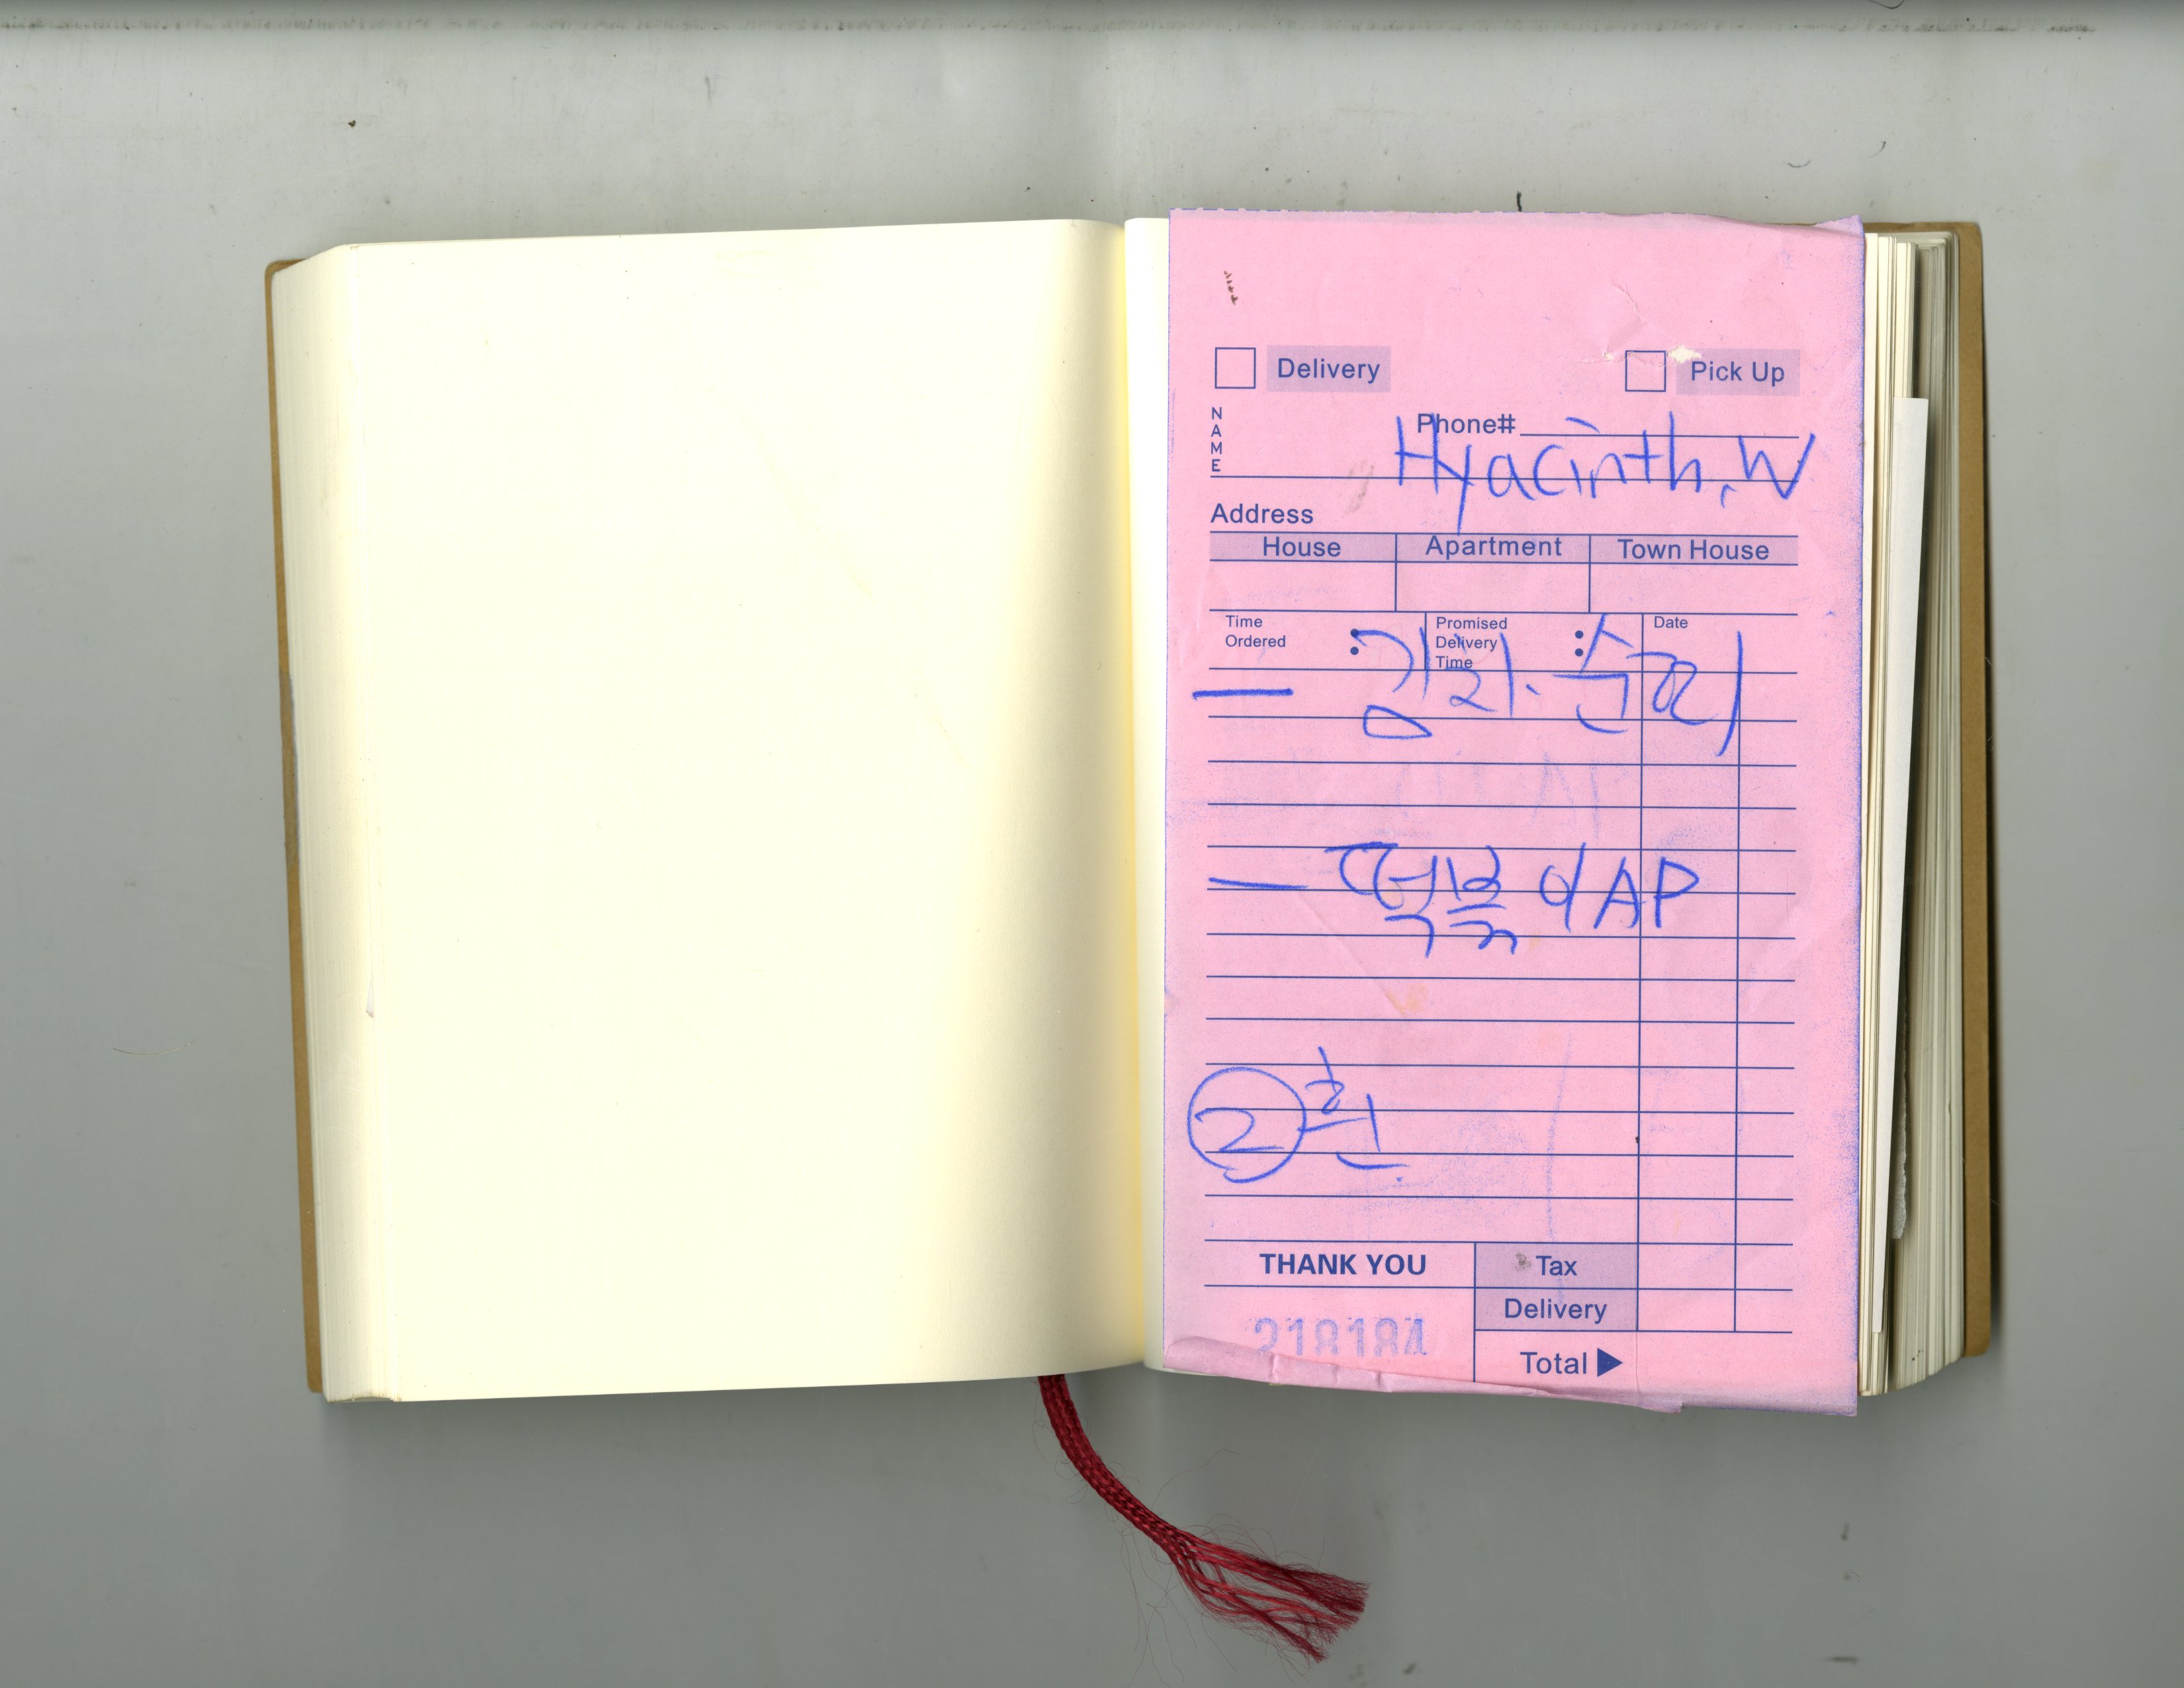 Delivery Pick Up
NAME
Phone#
Hyacinth, W
Address
House Apartment Town House
Time Ordered : Promised Delivery Time : Date
— 김치·순
— 떡볶이 AP
② 흰
THANK YOU Tax
Delivery
218184
Total ▶